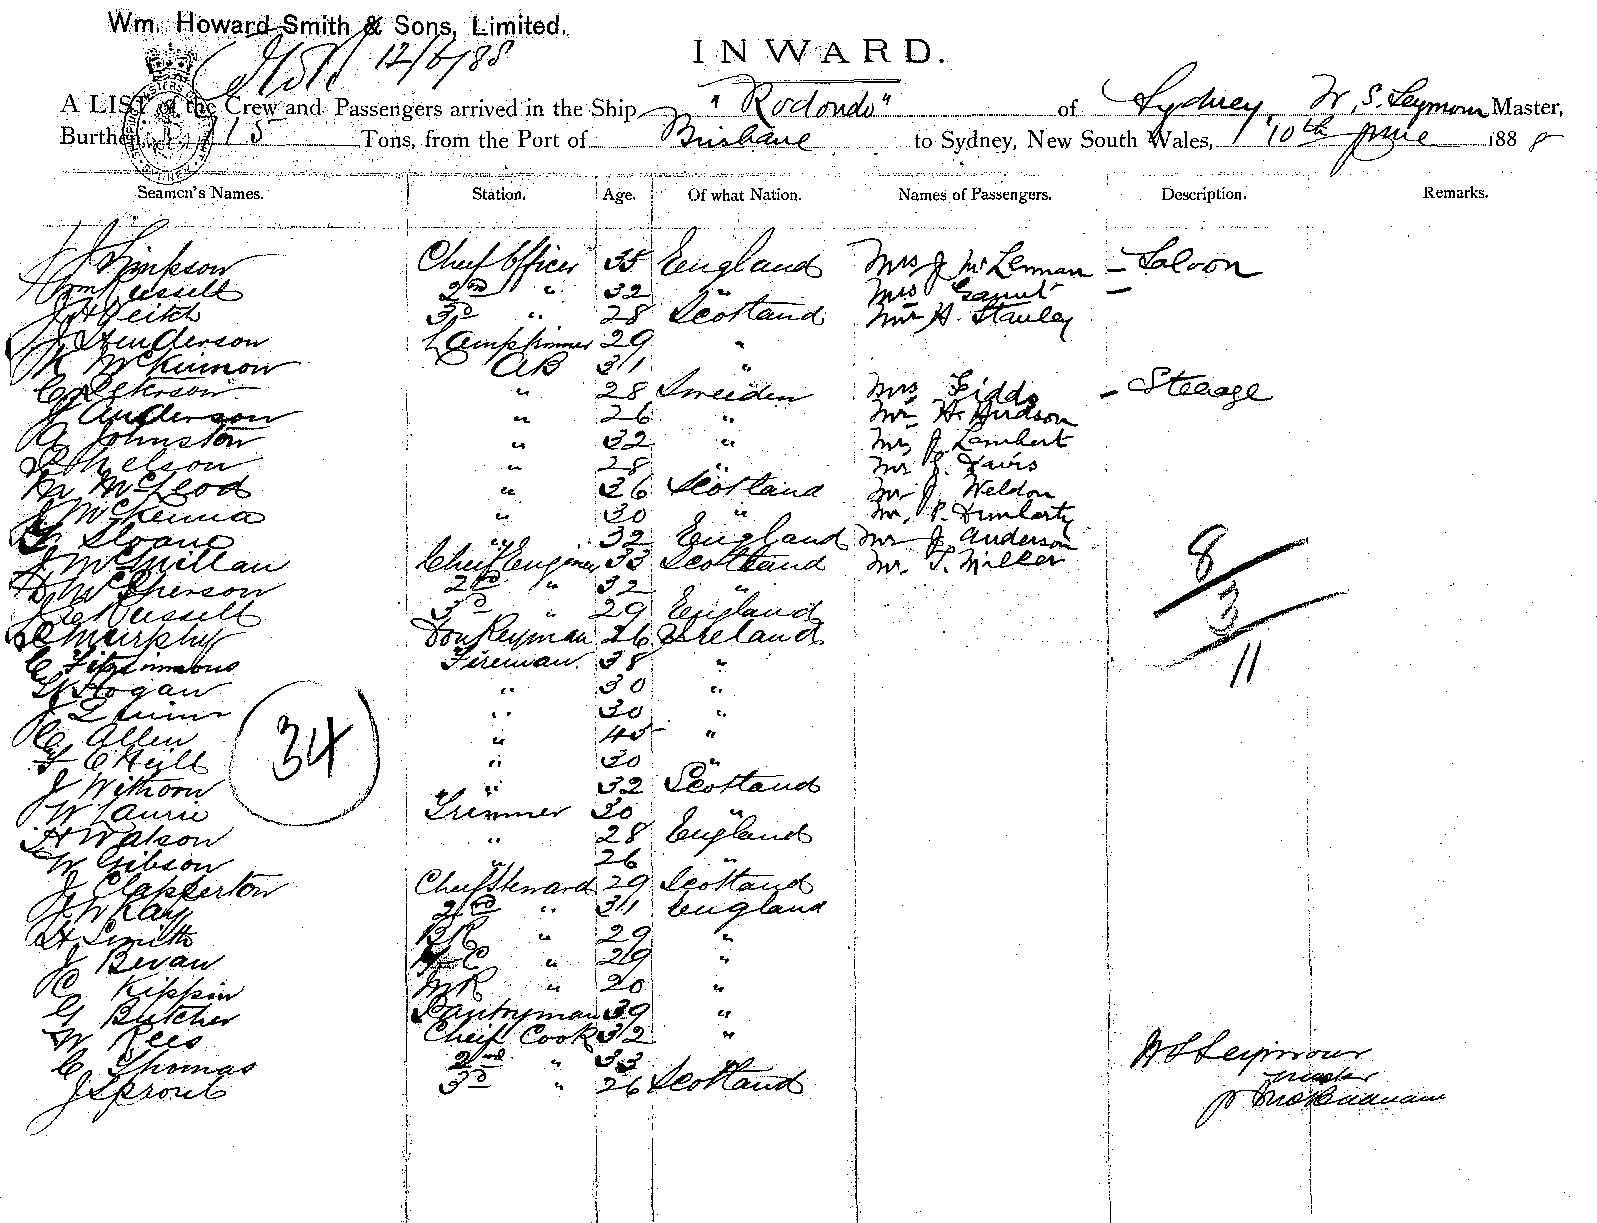 Wm. Howard Smith & Sons, Limited.
12/6/88
INWARD.
A LIST of the Crew and Passengers arrived in the Ship "Rodondo" of Sydney, W. S. Seymour Master,
Burthen 715 Tons, from the Port of Brisbane to Sydney, New South Wales, 10th June 1888
Seamen's Names. Station. Age. Of what Nation. Names of Passengers. Description. Remarks.
J Simpson Cheif Officer 35 England Mrs J McLennan - Saloon
Wm Russell 2nd " 32 " Mrs Garnut -
J H Veitch 3d " 28 Scotland Mr H. Stanley
J Henderson Lamptrimmer 29 "
K McKinnon AB 31 "
C Peterson " 28 Sweeden Mrs Fidds - Steeage
J Anderson " 26 " Mr H. Hudson
A Johnston " 32 " Mr J. Lambert
Nelson " 28 " Mr J. Davis
M McLeod " 36 Scotland Mr J. Weldon
J McKenna " 30 " Mr. P.
Sloane " 32 England Mr J Anderson
J McMillan Cheif Engineer 33 Scotland Mr. T. Miller
D McPherson 2nd " 32 "
J C Russell 3d " 29 England
Murphy Donkeyman 26 Ireland
C Fitzsimmons Fireman 38 "
W Hogan " 30 "
J Quinn " 30 "
C Allen " 45 "
F O'Neill " 30 "
J Withorn " 32 Scotland
W Laurie Trimmer 30 "
H Watson " 28 England
W Gibson " 26 "
J Clapperton Cheif Steward 29 Scotland
J W Kay 2nd " 31 England
H Smith BR " 29 "
J Bevan " 29 "
C Kippin MR " 20 "
G Butcher Pantryman 39 "
W Rees Cheif Cook 32 "
C Thomas 2nd " 33 "
J Sprout 3d " 26 Scotland
34
8
3
11
W S Seymour
master